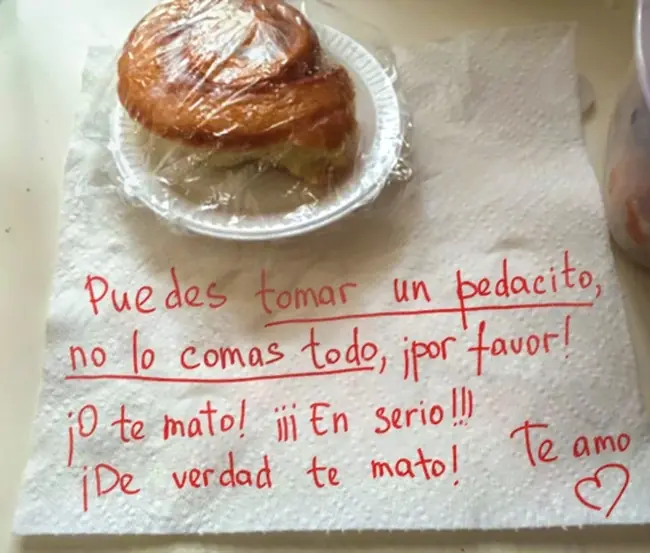 Puedes tomar un pedacito,
no lo comas todo, ¡por favor!
¡O te mato! ¡¡¡En serio!!!
¡De verdad te mato! Te amo